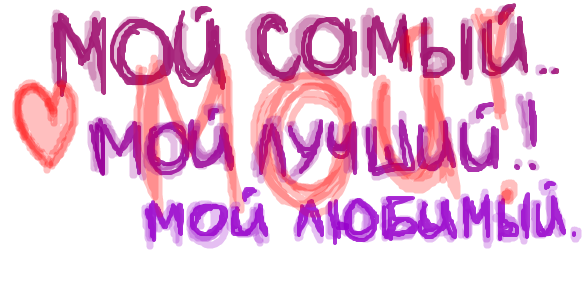 мой самый..
мой лучший..!
мой любимый.
мой!